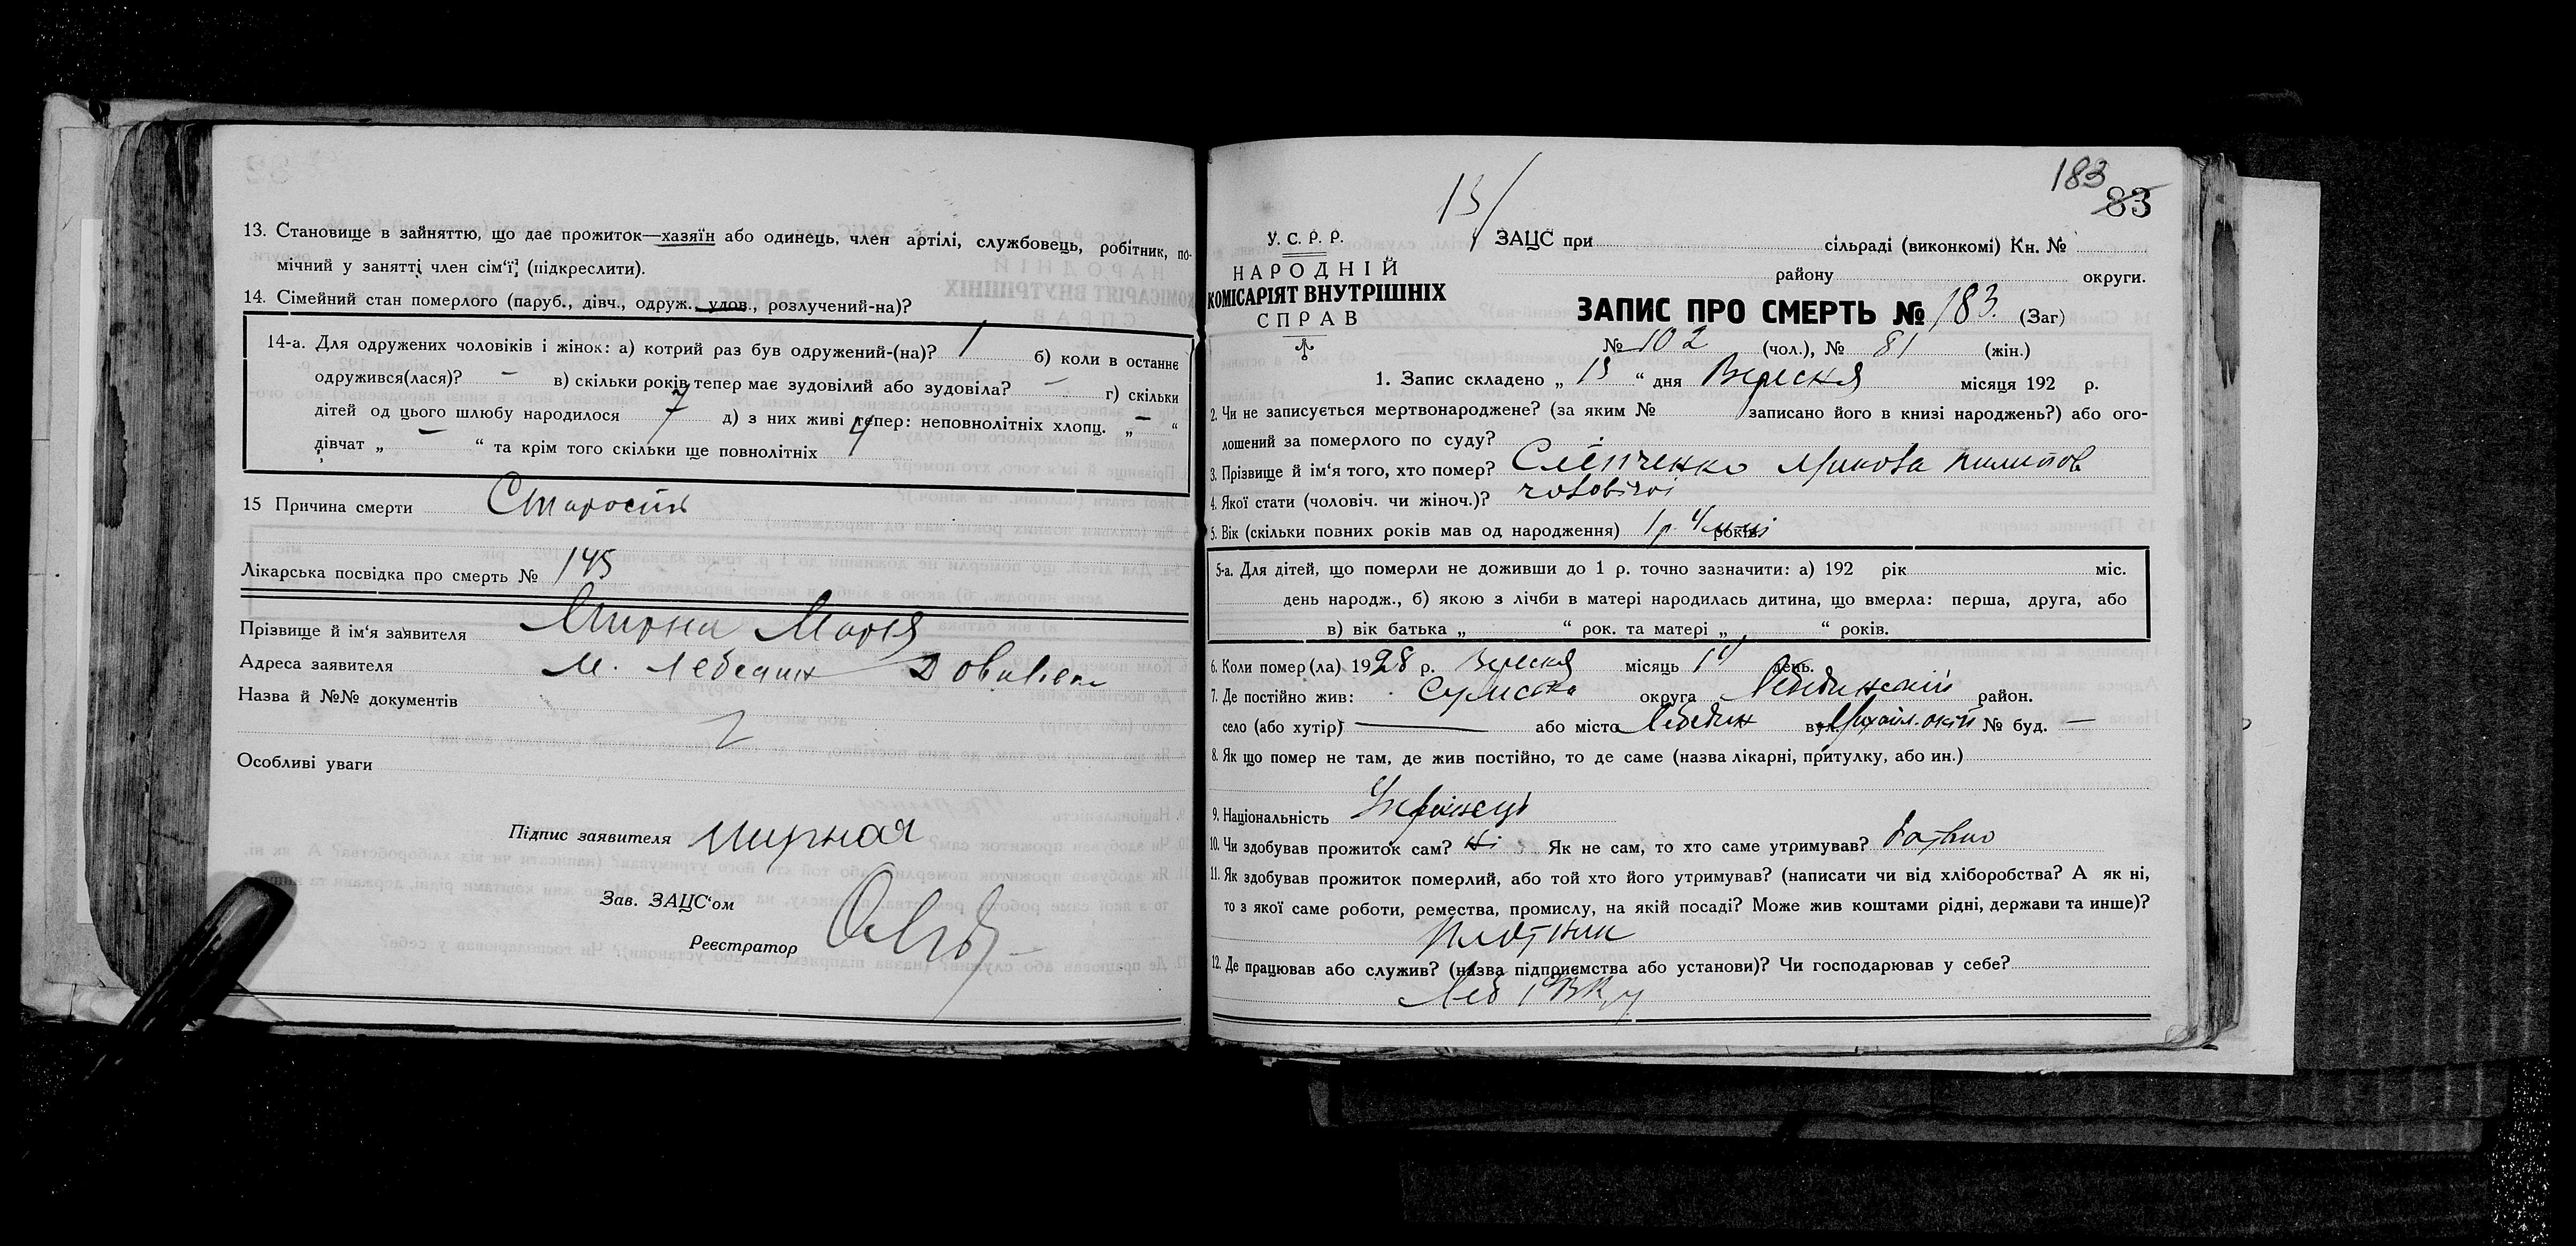 13. Становище в зайняттю, що дає прожиток—хазяїн або одинець, член артілі, службовець, робітник, по-
мічний у занятті член сім'ї, (підкреслити).
14. Сімейний стан померлого (паруб., дівч., одруж., удов., розлучений-на)?
14-а. Для одружених чоловіків і жінок: а) котрий раз був одружений-(на)? 1 б) коли в останнє
одружився(лася)? – в) скільки років тепер має зудовілий або зудовіла? – г) скільки
дітей од цього шлюбу народилося 7 д) з них живі тепер: неповнолітніх хлопц. „ – “
дівчат „ – “ та крім того скільки ще повнолітніх 4
15 Причина смерти Старость
Лікарська посвідка про смерть № 145
Прізвище й ім'я заявителя Мирна Марія
Адреса заявителя м. Лебедин
Назва й №№ документів
Особливі уваги
Підпис заявителя Мирная
Зав. ЗАЦС'ом
Реєстратор
183
83
13/
У. С. Р. Р.
НАРОДНІЙ
КОМІСАРІЯТ ВНУТРІШНІХ
СПРАВ
ЗАЦС при сільраді (виконкомі) Кн. №
району округи.
ЗАПИС ПРО СМЕРТЬ № 183. (Заг)
№ 102 (чол.), № 81 (жін.)
1. Запис складено „ 13 “ дня Вересня місяця 192 р.
2. Чи не записується мертвонароджене? (за яким № записано його в книзі народжень?) або ого-
лошений за померлого по суду?
3. Прізвище й ім'я того, хто помер? Слепченко Микола Пилипов
4. Якої стати (чоловіч. чи жіноч.)? чоловічої
5. Вік (скільки повних років мав од народження) 1 р. 4 м-ці років
5-а. Для дітей, що померли не доживши до 1 р. точно зазначити: а) 192 рік міс.
день народж., б) якою з лічби в матері народилась дитина, що вмерла: перша, друга, або
в) вік батька „ “ рок. та матері „ “ років.
6. Коли помер(ла) 1928 р. Вересня місяць 11 день.
7. Де постійно жив: Сумська округа Лебединський район.
село (або хутір) — або місто Лебедин вул. № буд. —
8. Як що помер не там, де жив постійно, то де саме (назва лікарні, притулку, або ин.)
9. Національність Українець
10. Чи здобував прожиток сам? Ні Як не сам, то хто саме утримував? батько
11. Як здобував прожиток померлий, або той хто його утримував? (написати чи від хліборобства? А як ні,
то з якої саме роботи, ремества, промислу, на якій посаді? Може жив коштами рідні, держави та инше)?
Плотник
12. Де працював або служив? (назва підприємства або установи)? Чи господарював у себе?
Леб